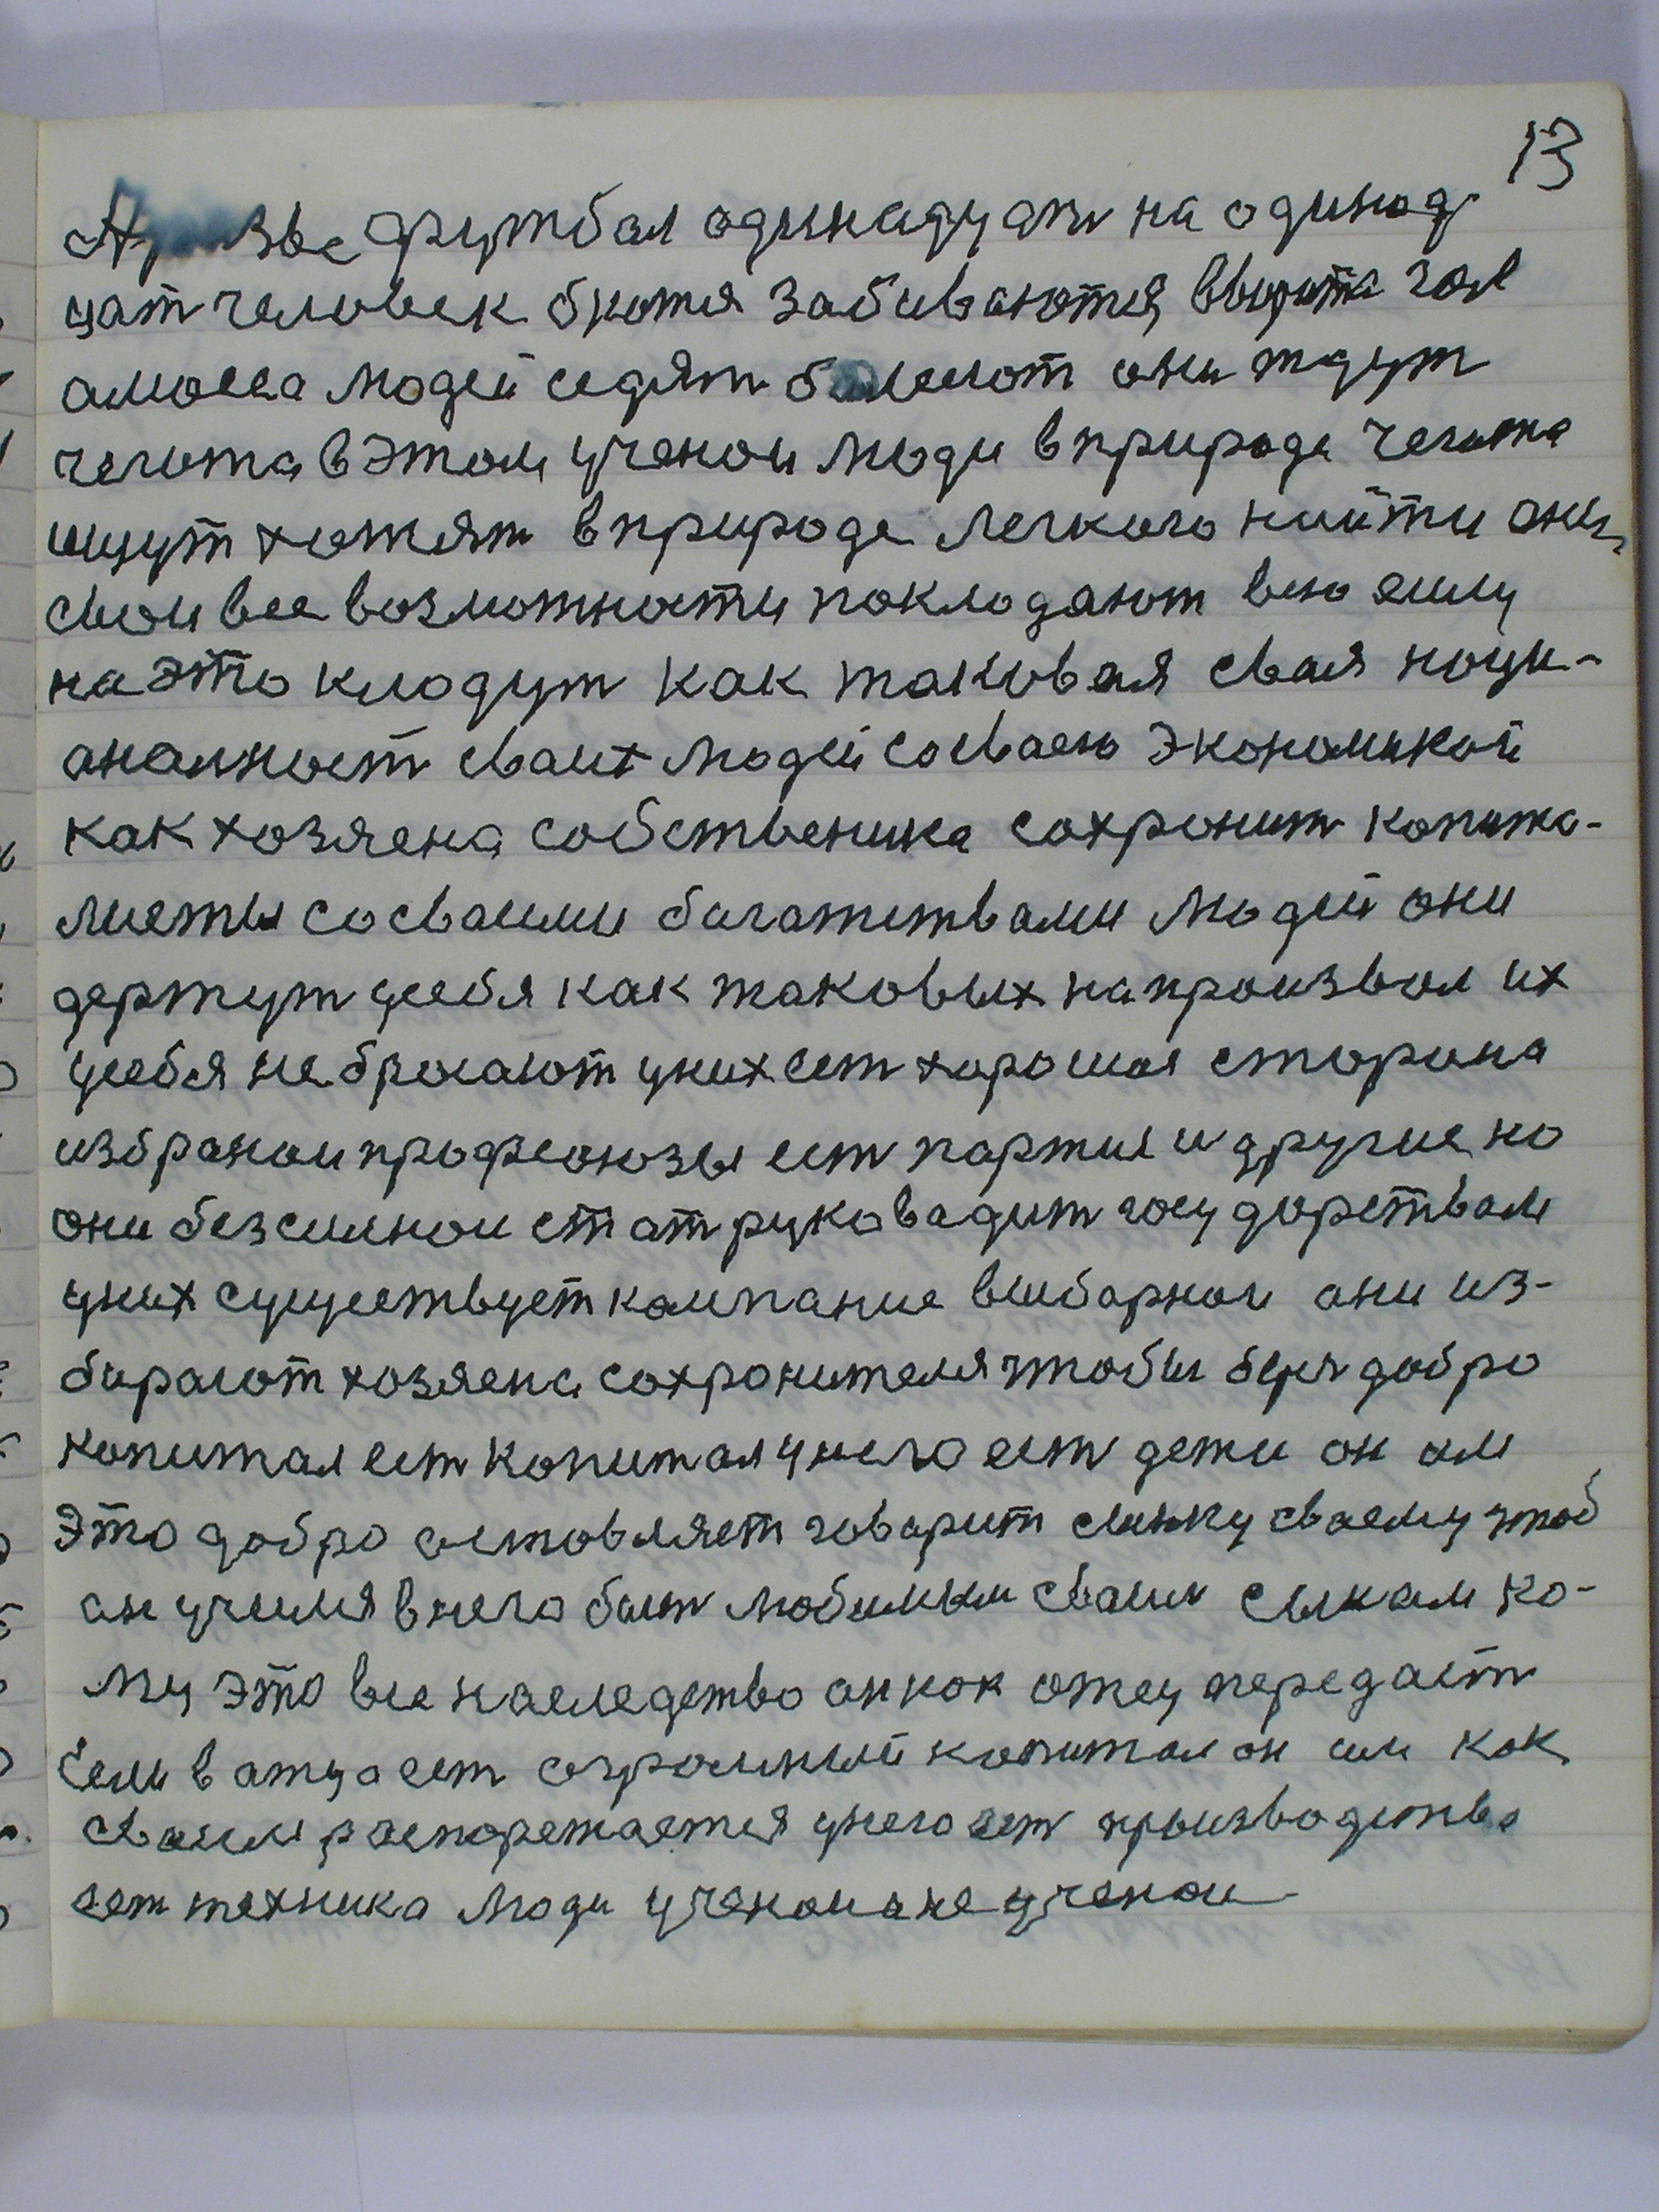 13
футбал одинадцати на одинад-
цат человек бютия забиваются ввората гол
амасса людей седят болеют они ждут
чегота вэтом ученои люди вприроде чегота
ищут хотят вприроде легкого нийти они
свои все возможности покладают всю силу
на это кладут как таковая свая наци-
аналност сваих людей сосваею экономикой
как хозяена собственика сохронит капита-
листы сосваими багатствами людей они
держут усебя как таковых напроизвол их
усебя не бросают уних ест харошая сторана
избранои профсоюзы ест партия и другие но
они безсилнои стат руковадит государствам
уних существует кампание выборнои они из-
бирают хозяена сохронителя чтобы было добро
капитал ест капитал у него ест дети он им
Это добро астовляет говарит сынку сваему чтоб
ан училия внего быт любимым сваим сынам ко-
му это все наследство ан как отец передаст
Если в атца ест огромный капитал он им как
сваим распорежается унего ест производства
ест техника люди ученои ане ученои